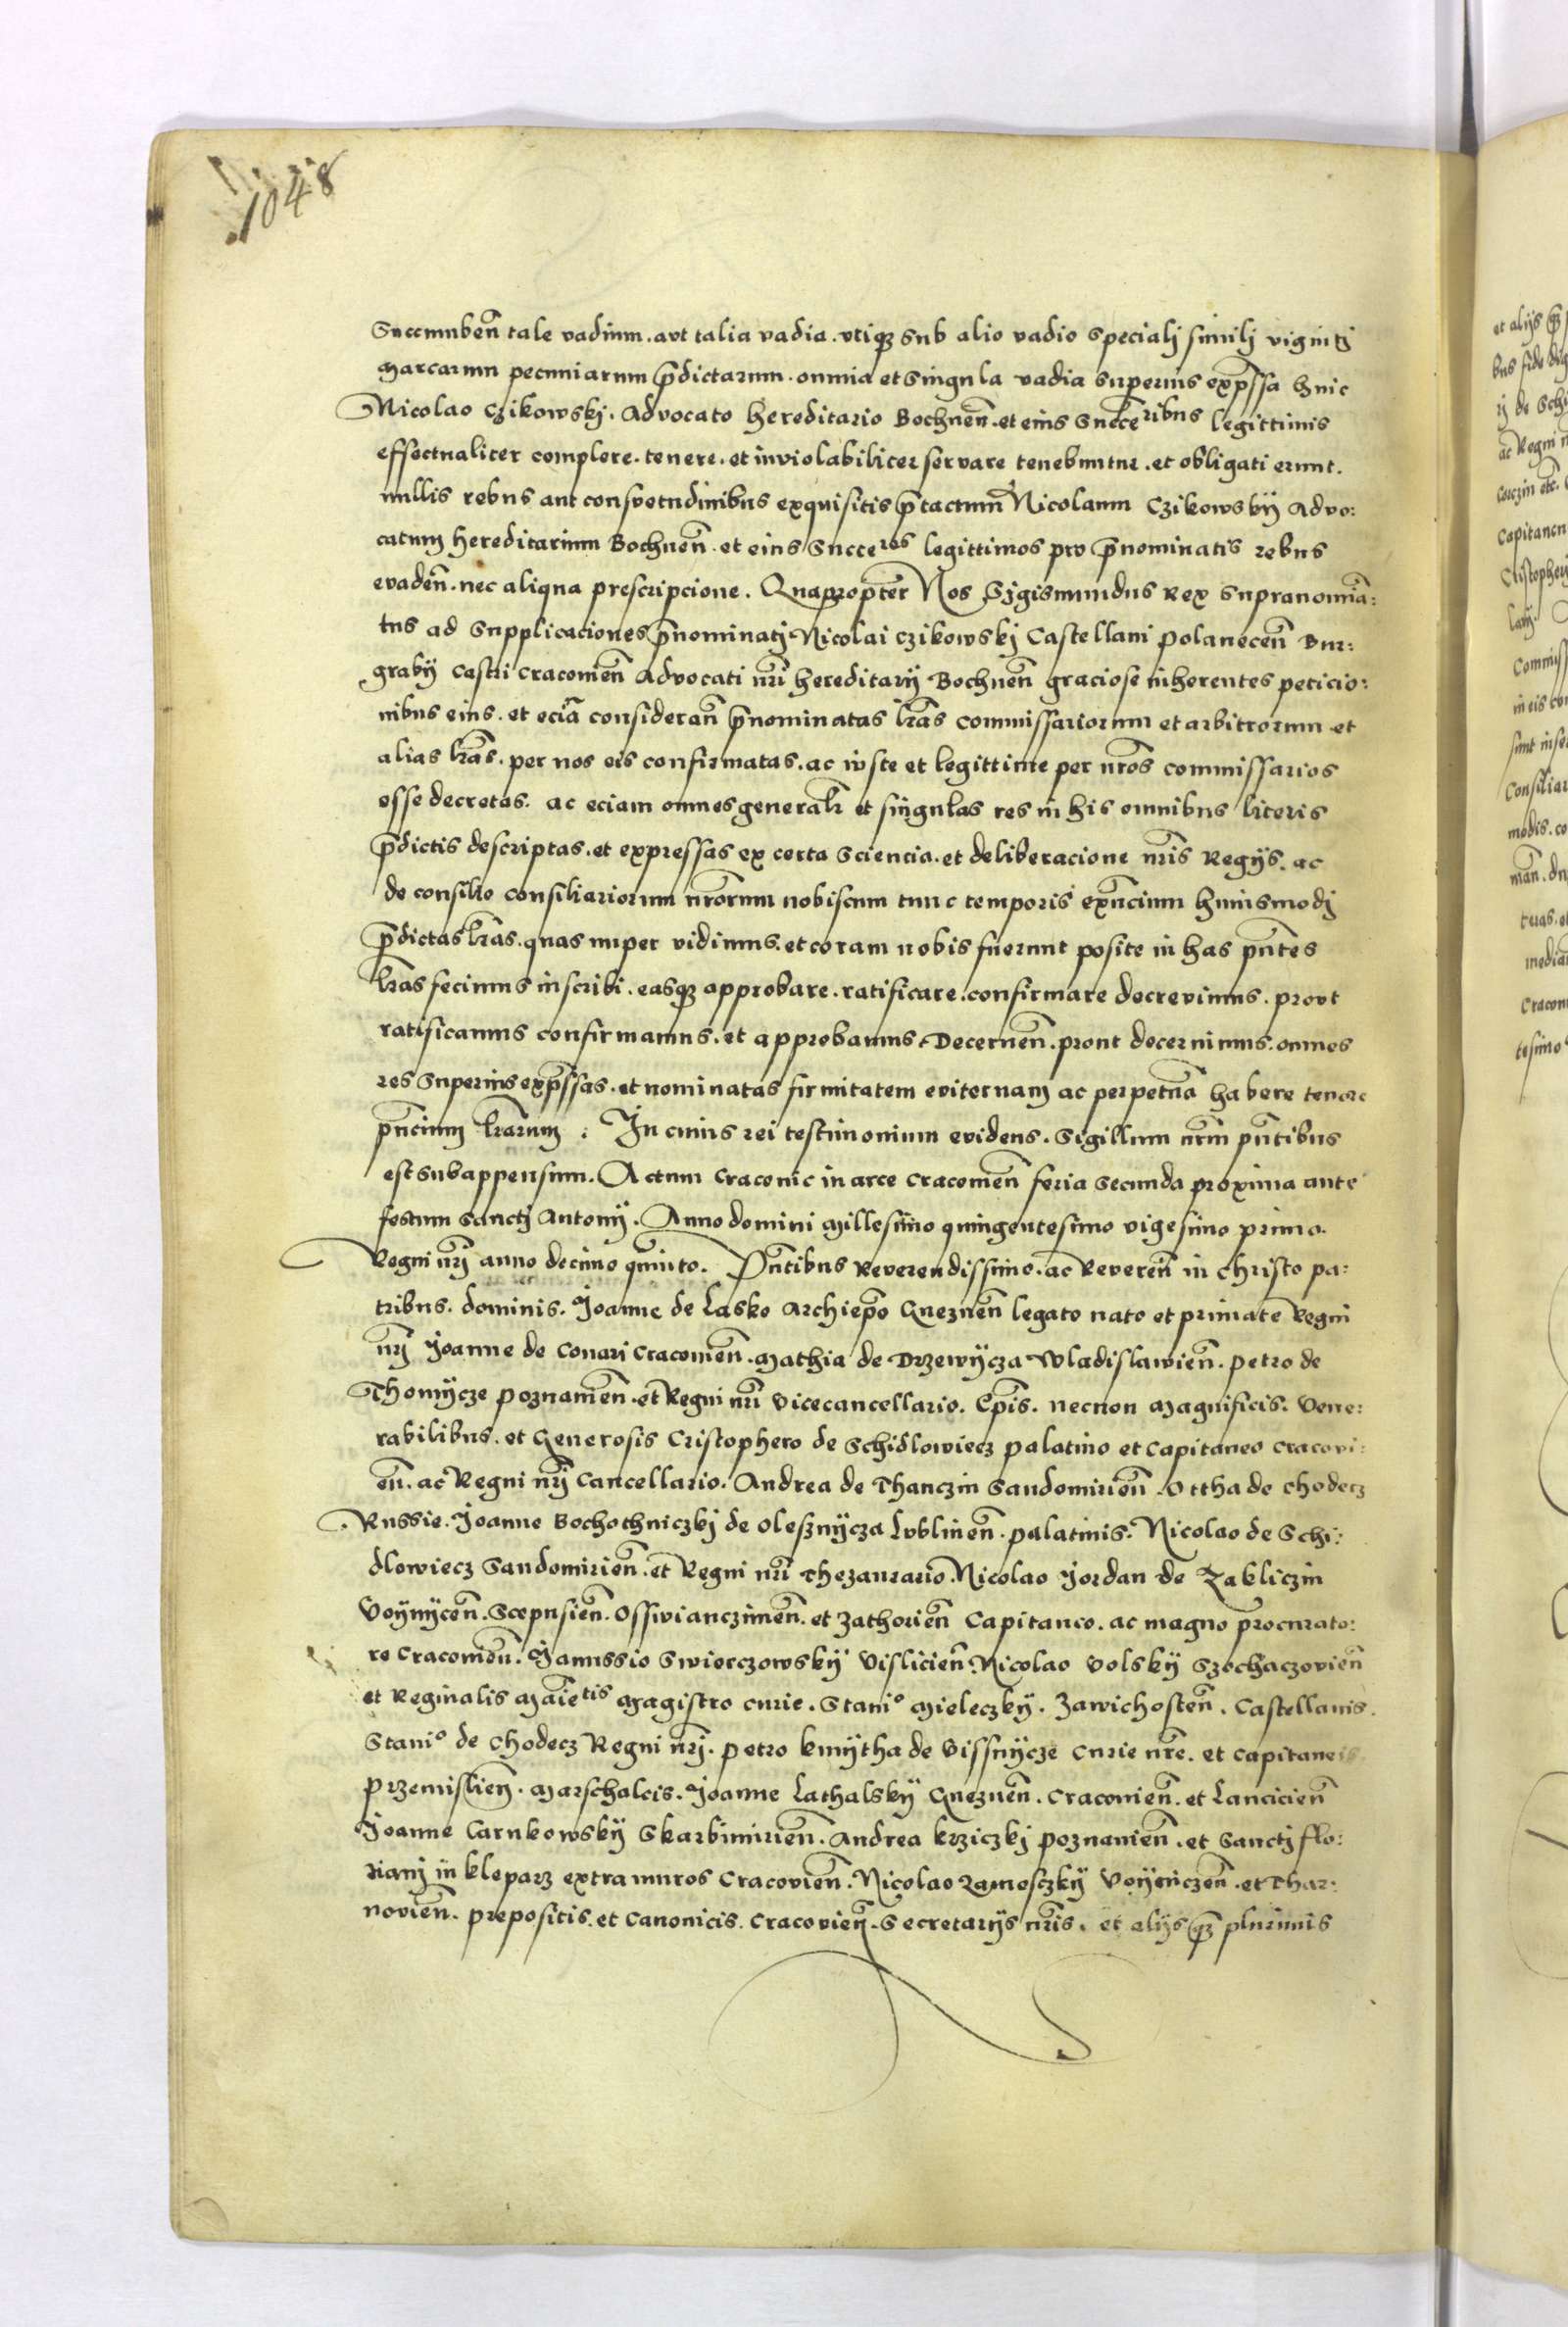 1048
Succumben̄ tale vadium. avt talia vadia. vtiqꝫ sub alio vadio specialj similj vigintj
marcarum pecuniarum p̄dictarum. omnia et singula vadia superius exp̄ssa huic
Nicolao Czikowskj. Advocato hereditario Bochnen̄. et eius succeribus legittimis
effectualiter complere. tenere. et inviolabiliter servare tenebuntur. et obligati erunt.
nullis rebus aut consvetudinibus exquisitis p̄tactum Nicolaum Czikowskÿ Advo:
catum hereditarium Bochnen̄. et eius succeres legittimos pro p̄nominatis rebus
evaden̄. nec aliqua prescripcione. Quapropter Nos Sÿgismundus Rex supranomīa:
tus ad supplicaciones p̄nominatj Nicolai Czikowskj Castellani Polanecen̄ Bur:
grabÿ Castri Cracouien̄ Advocati nr̄i hereditarÿ Bochnen̄ graciose inherentes peticio:
nibus eius. et eciā consideran̄ p̄nominatas lr̄as commissariorum et arbitrorum et
alias lr̄as. per nos eis confirmatas. ac iuste et legittime per nr̄os commissarios
esse decretas. ac eciam omnes generalr̄ et singulas res in his omnibus literis
p̄dictis descriptas. et expressas ex certa sciencia. et deliberacione nr̄is Regÿs. ac
de consilio consiliariorum nr̄orum nobiscum tunc temporis exn̄cium huiusmodj
p̄dictas lr̄as. quas nuper vidimus. et coram nobis fuerunt posite in has pn̄tes
lr̄as fecimus inscribi. easqꝫ approbare. ratificare. confirmare decrevimus. provt
ratificamus confirmamus. et approbamus. Decernen̄. prout decernimus. omnes
res superius exp̄ssas. et nominatas firmitatem eviternam ac perpetuā habere tenore
pn̄cium lr̄arum. In cuius rei testimonium evidens. Sigillum nr̄m pn̄tibus
est subappensum. Actum Cracouie in arce Cracouien̄ feria secunda proxima ante
festum sanctj Antonÿ. Anno domini Millesimo quingentesimo vigesimo primo.
Regni nr̄j anno decimo quinto. Pn̄tibus Reverendissimo. ac Reveren̄ in Christo pa:
tribus. dominis. Joanne de Lasko Archiep̄o Gneznen̄ legato nato et primate Regni
nr̄j Joanne de Conari Cracouien̄. Mathia de Drzewÿcza Wladislavien̄. Petro de
Thomÿcze Poznanien̄. et Regni nr̄i Vicecancellario. Ep̄is. necnon Magnificis. Vene:
rabilibus. et Generosis Cristophero de Schidlowiecz palatino et Capitaneo Cracovi:
en̄. ac Regni nr̄j Cancellario. Andrea de Thanczin Sandomirien̄. Ottha de Chodecz
Russie. Joanne Bochothniczkj de Olesznÿcza Lublinen̄. palatinis. Nicolao de Schi:
dlowiecz Sandomirien̄. et Regni nr̄i Thezaurario. Nicolao Jordan de Zakliczin
Voÿnÿcen̄. Scepusien̄. Osswianczimen̄. et Zathorien̄ Capitaneo. ac magno procurato:
re Cracouien̄. Janussio Swierczowskÿ Vislicien̄ Nicolao Volskÿ Szochaczovien̄
et Reginalis Maietis Magistro curie. Stanio Mieleczkÿ. Zawichosten̄. Castellanis.
Stanio de Chodecz Regni nr̄j. Petro Kmÿtha de Vissnÿcze Curie nr̄e. et Capitaneis
Przemislien̄. Marschalcis. Joanne Lathalskÿ Gneznen̄. Cracouien̄. et Lancicien̄
Joanne Carnkowskÿ Skarbimirien̄. Andrea Krziczkj Poznanien̄. et Sanctj Flo:
rianj in Kleparz extra muros Cracovien̄. Nicolao Zamosczkÿ Voÿniczen̄. et Thar:
novien̄. prepositis. et Canonicis. Cracovien̄. Secretarÿs nr̄is. et alÿs qꝫ plurimis